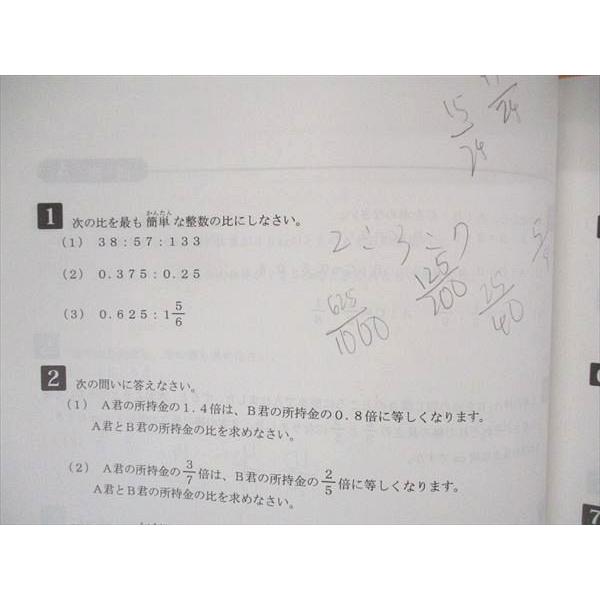 15/24
/24
1 次の比を最も簡単な整数の比にしなさい。
かんたん
(1) 38:57:133
2:3:7
(2) 0.375:0.25
(3) 0.625:1 5/6
625/1000
125/200
25/40
2 次の問いに答えなさい。
(1) A君の所持金の1.4倍は、B君の所持金の0.8倍に等しくなります。
A君とB君の所持金の比を求めなさい。
(2) A君の所持金の3/7倍は、B君の所持金の2/5倍に等しくなります。
A君とB君の所持金の比を求めなさい。
7